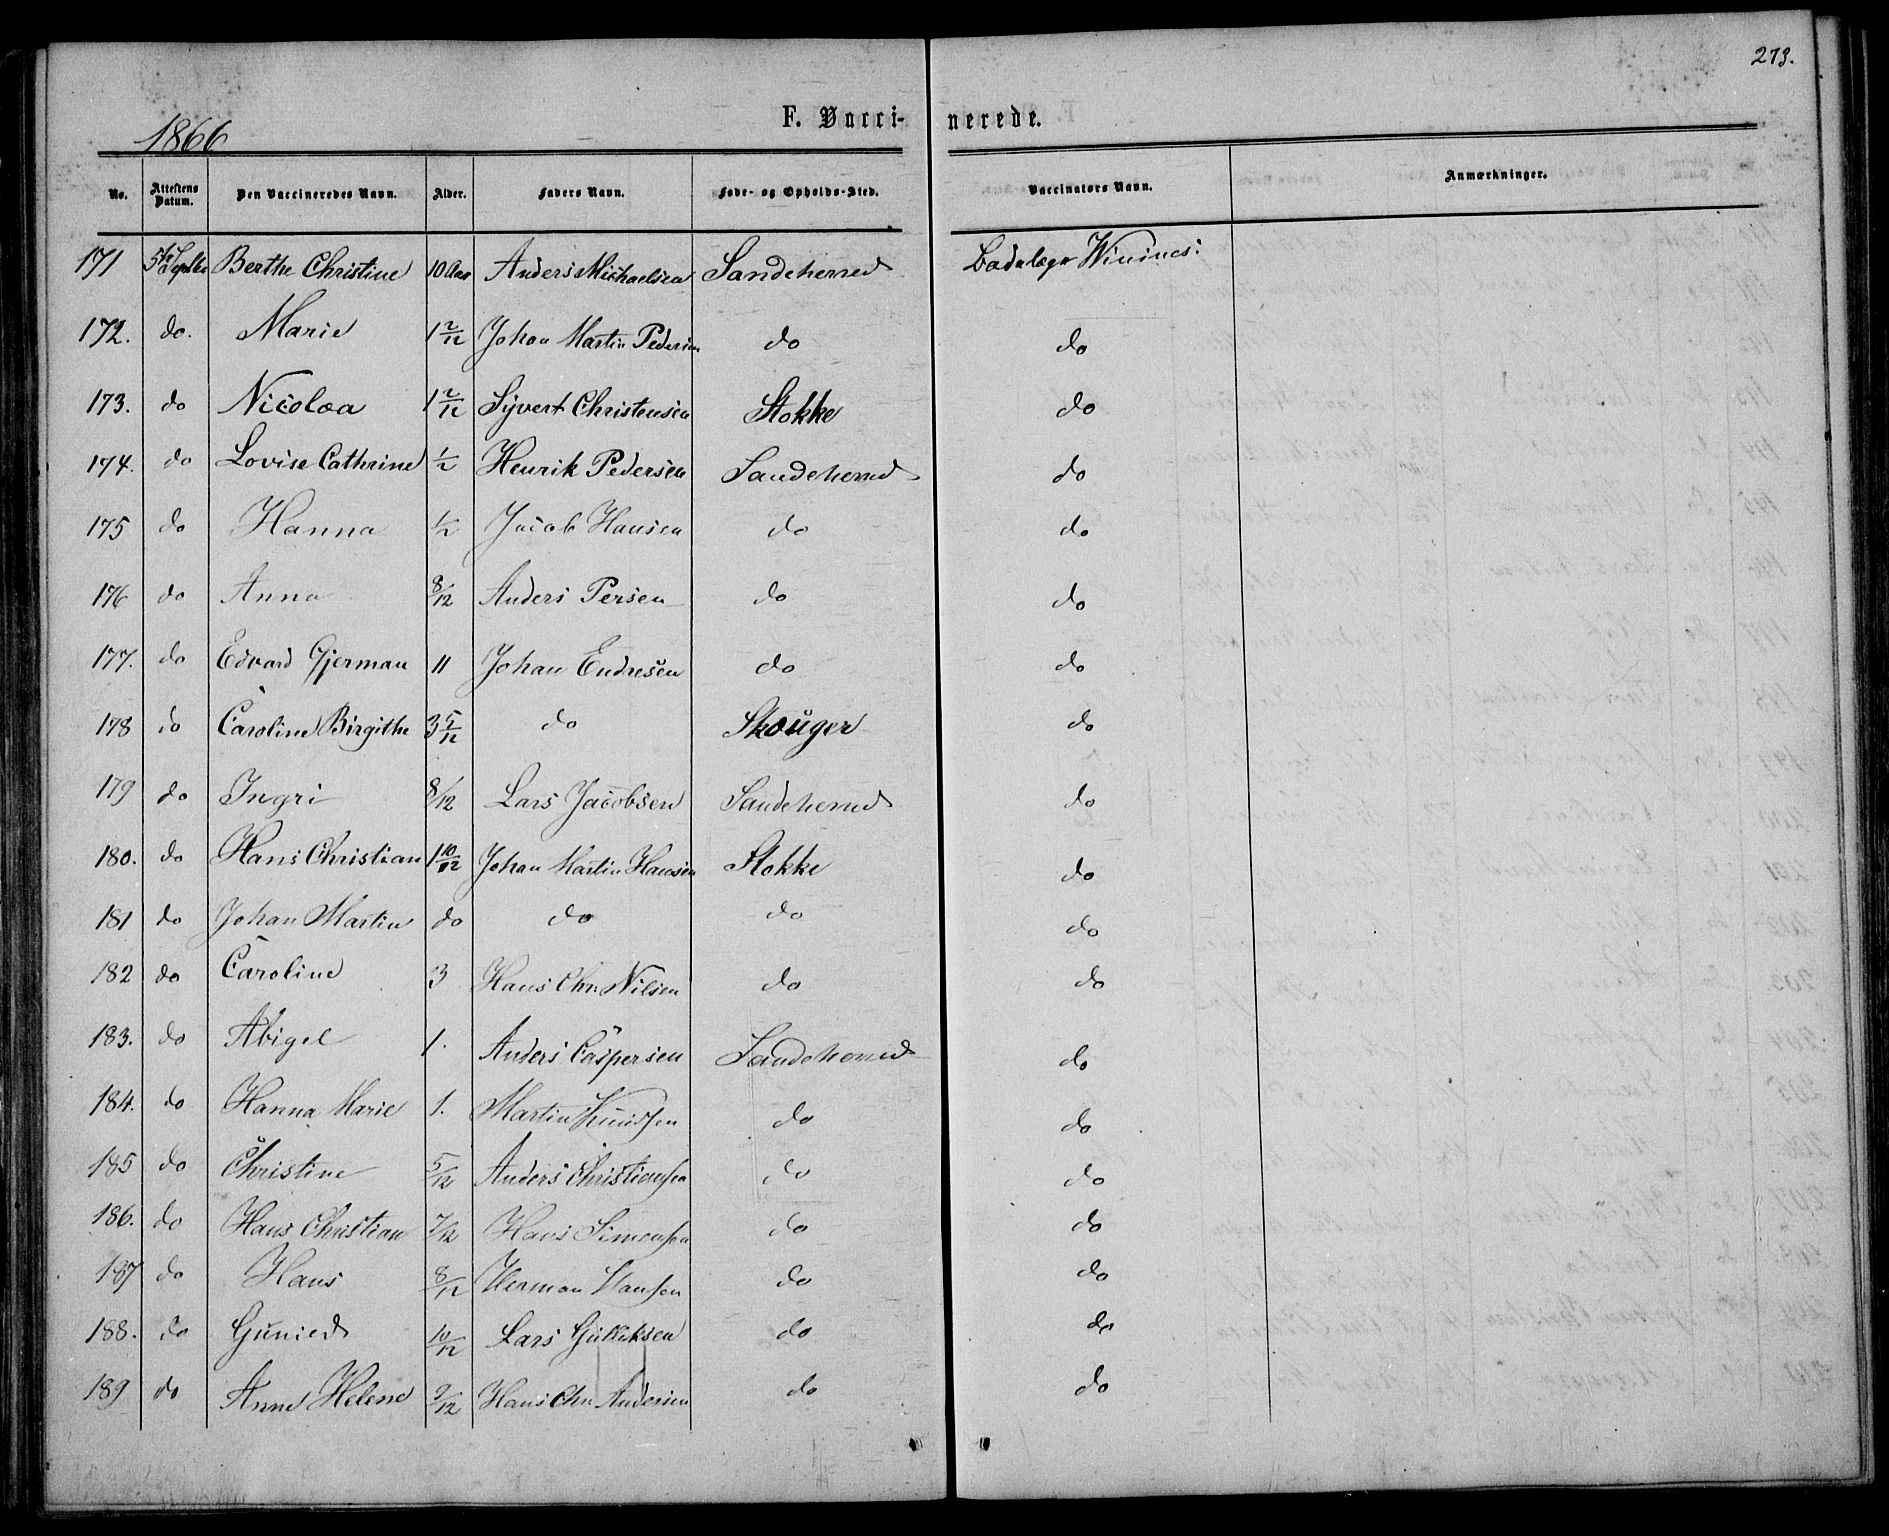 273.
1866
F. Vacci- nerede.
No. Attestens Datum. Den Vaccineredes Navn. Alder. Faders Navn. Føde- og Opholds-Sted. Vaccinators Navn. Anmærkninger.
171 5te Septbr Berthe Christine 10 Aar Anders Michaelsen Sandeherred Badelæge
172. do. Marie 1 2/12 Johan Martin Pedersen do do
173. do Nicolea 1 2/12 Syvert Christensen Stokke do
174. do Lovise Cathrine 1/2 Henrik Pedersen Sandeherred do
175 do Hanna 1/2 Jacob Hansen do do
176 do Anna 8/12 Anders Persen do do
177. do Edvard Gjerman 11 Johan Endresen do do
178 do Caroline Birgithe 3 5/12 do Skouger do
179 do Ingri 8/12 Lars Jacobsen Sandeherred do
180. do Hans Christian 1 10/12 Johan Martin Hansen Stokke do
181 do Johan Martin do do do do
182 do Caroline 3 Hans Chr. Nilsen do do
183. do Abigel 1. Anders Caspersen Sandeherred do
184. do Hanna Marie 1. Martin Knudsen do do
185 do Christine 5/12 Anders Christiansen do do
186. do Hans Christian 7/12 Hans Simonsen do do
187 do Hans 8/12 Herman Hansen do do
188. do Gunied 10/12 Lars Gulliksen do do
189 do Anne Helene 9/12 Hans Chr. Andersen do do